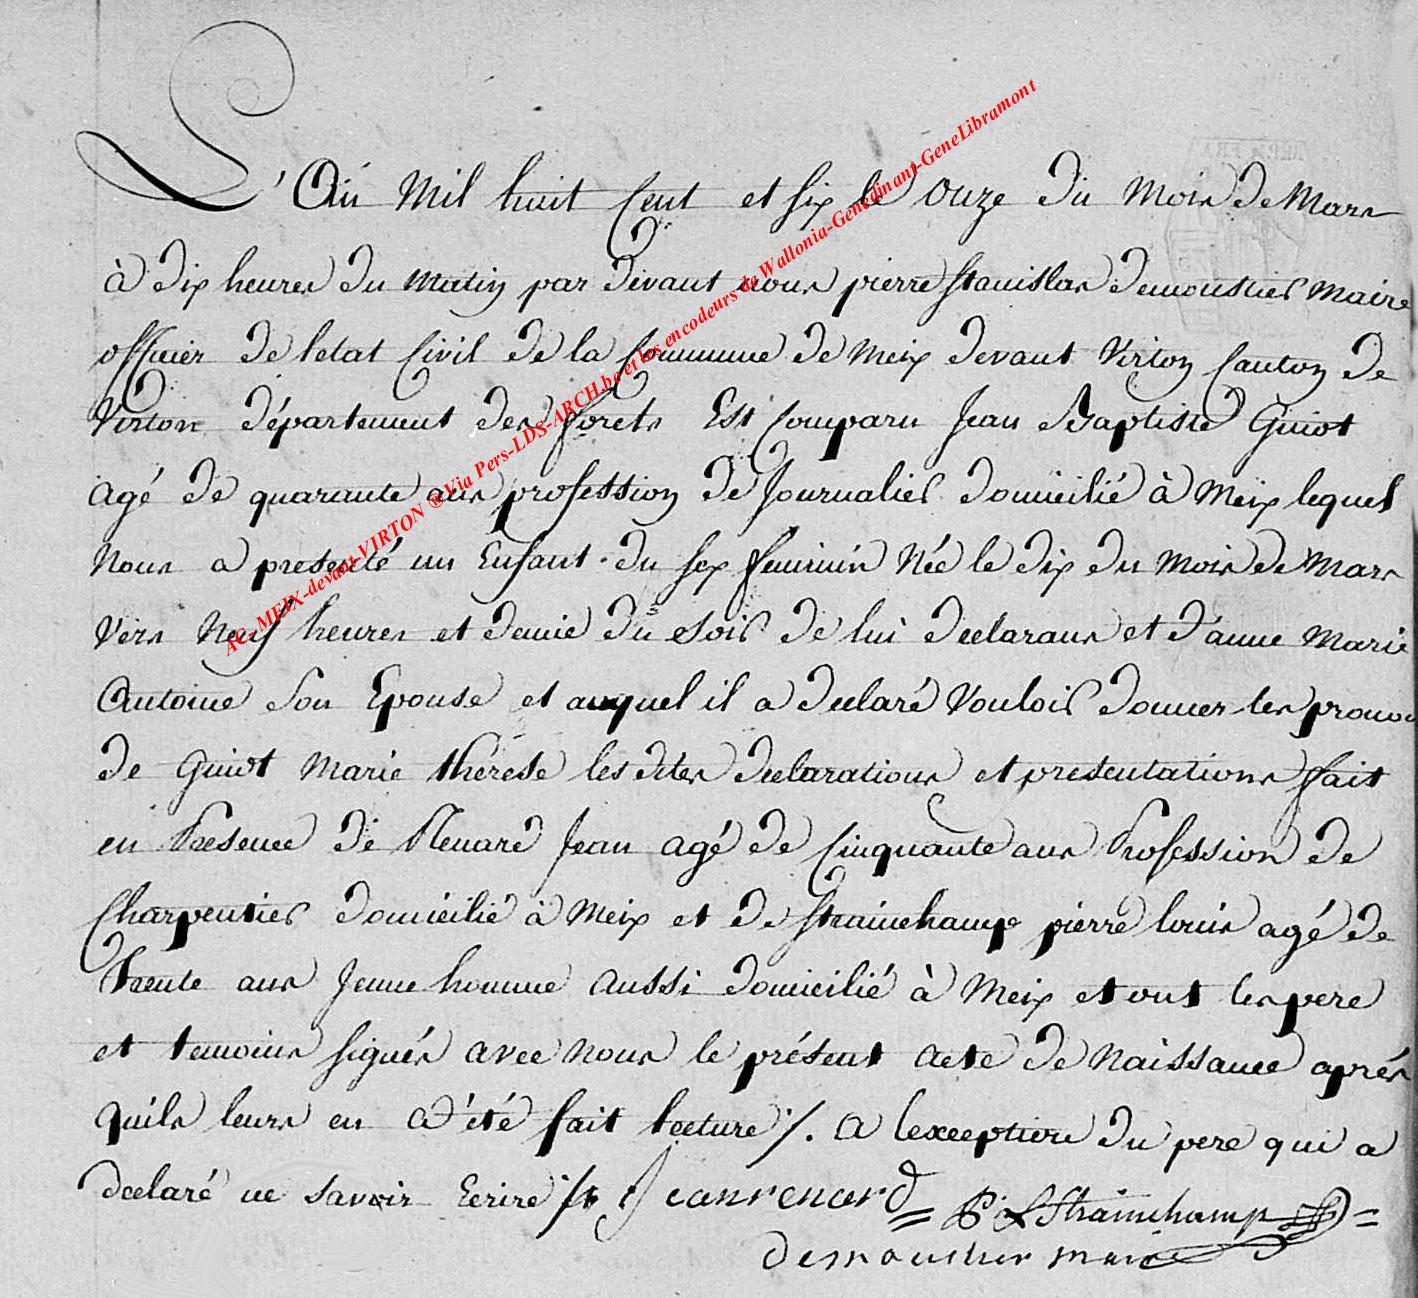 L'An Mil huit Cent et six le onze du Mois de Mars
à dix heures du matin par devant nous pierre stanislas Demoustier Maire
officier de l'etat Civil de la Commune de Meix devant Virton Canton de
Virton département des forets Est Comparu Jean Baptiste Guiot
agé de quarante ans profession de Journalier domicilié à Meix lequel
Nous a presenté un Enfant du sex feminin Née le dix du mois de Mars
Vers Neuf heures et demie du soir de lui declarans et d'anne Marie
Antoine Son Epouse et auquel il a declaré Vouloir donner les prenoms
de Guiot Marie therese les dites declarations et presentations fait
en Presence de Renard Jean agé de Cinquante ans Profession de
Charpentier domicilié à Meix et de Strainchamp pierre louis agé de
trente ans Jeune homme aussi domicilié à Meix et ont les pere
et temoins signés avec nous le présent acte de Naissance après
quils leurs en a été fait lecture ./. a lexception du pere qui a
declaré ne savoir Ecrire ./.
Jean renard
P: L Strainchamp
demoustier maire
AC- MEIX-devant-VIRTON ® Via Pers-LDS-ARCH.be et les encodeurs de Wallonia-Genedinant-GeneLibramont